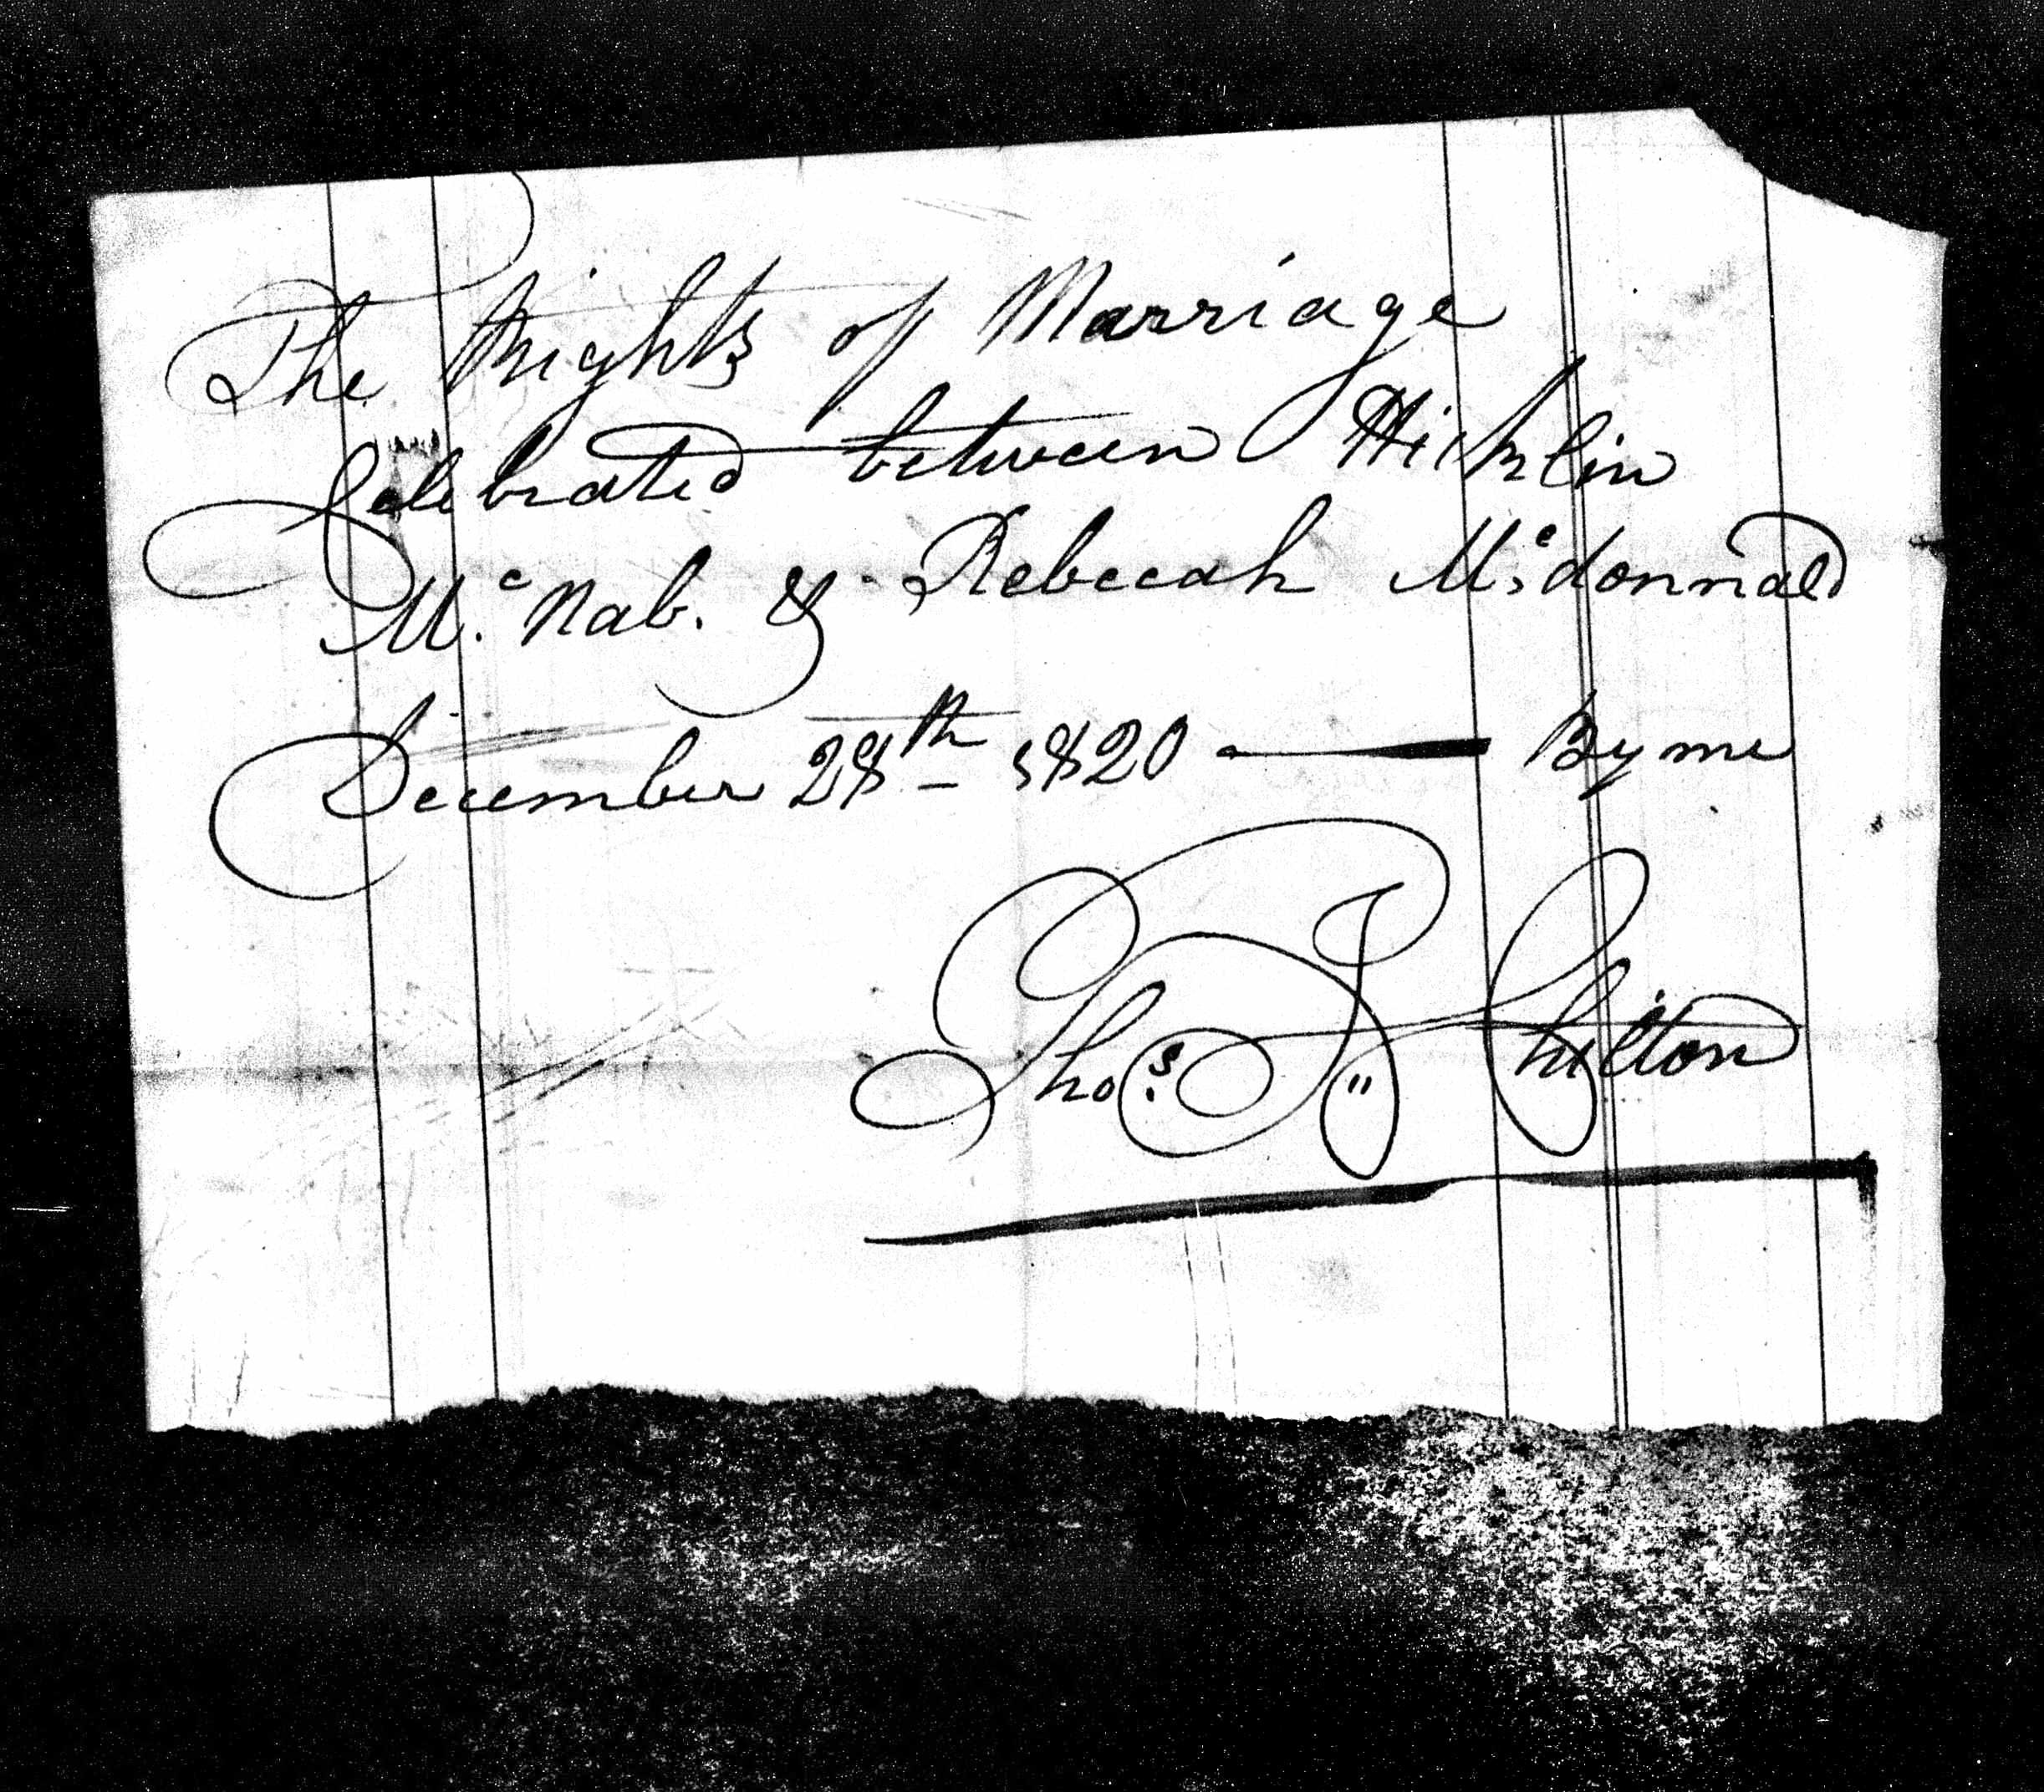 The Rights of Marriage
Celebrated between Hicklin
Mc. Nab. & Rebecah Mc.donnald
December 28th 1820 — By me
Thos. J" Chilton